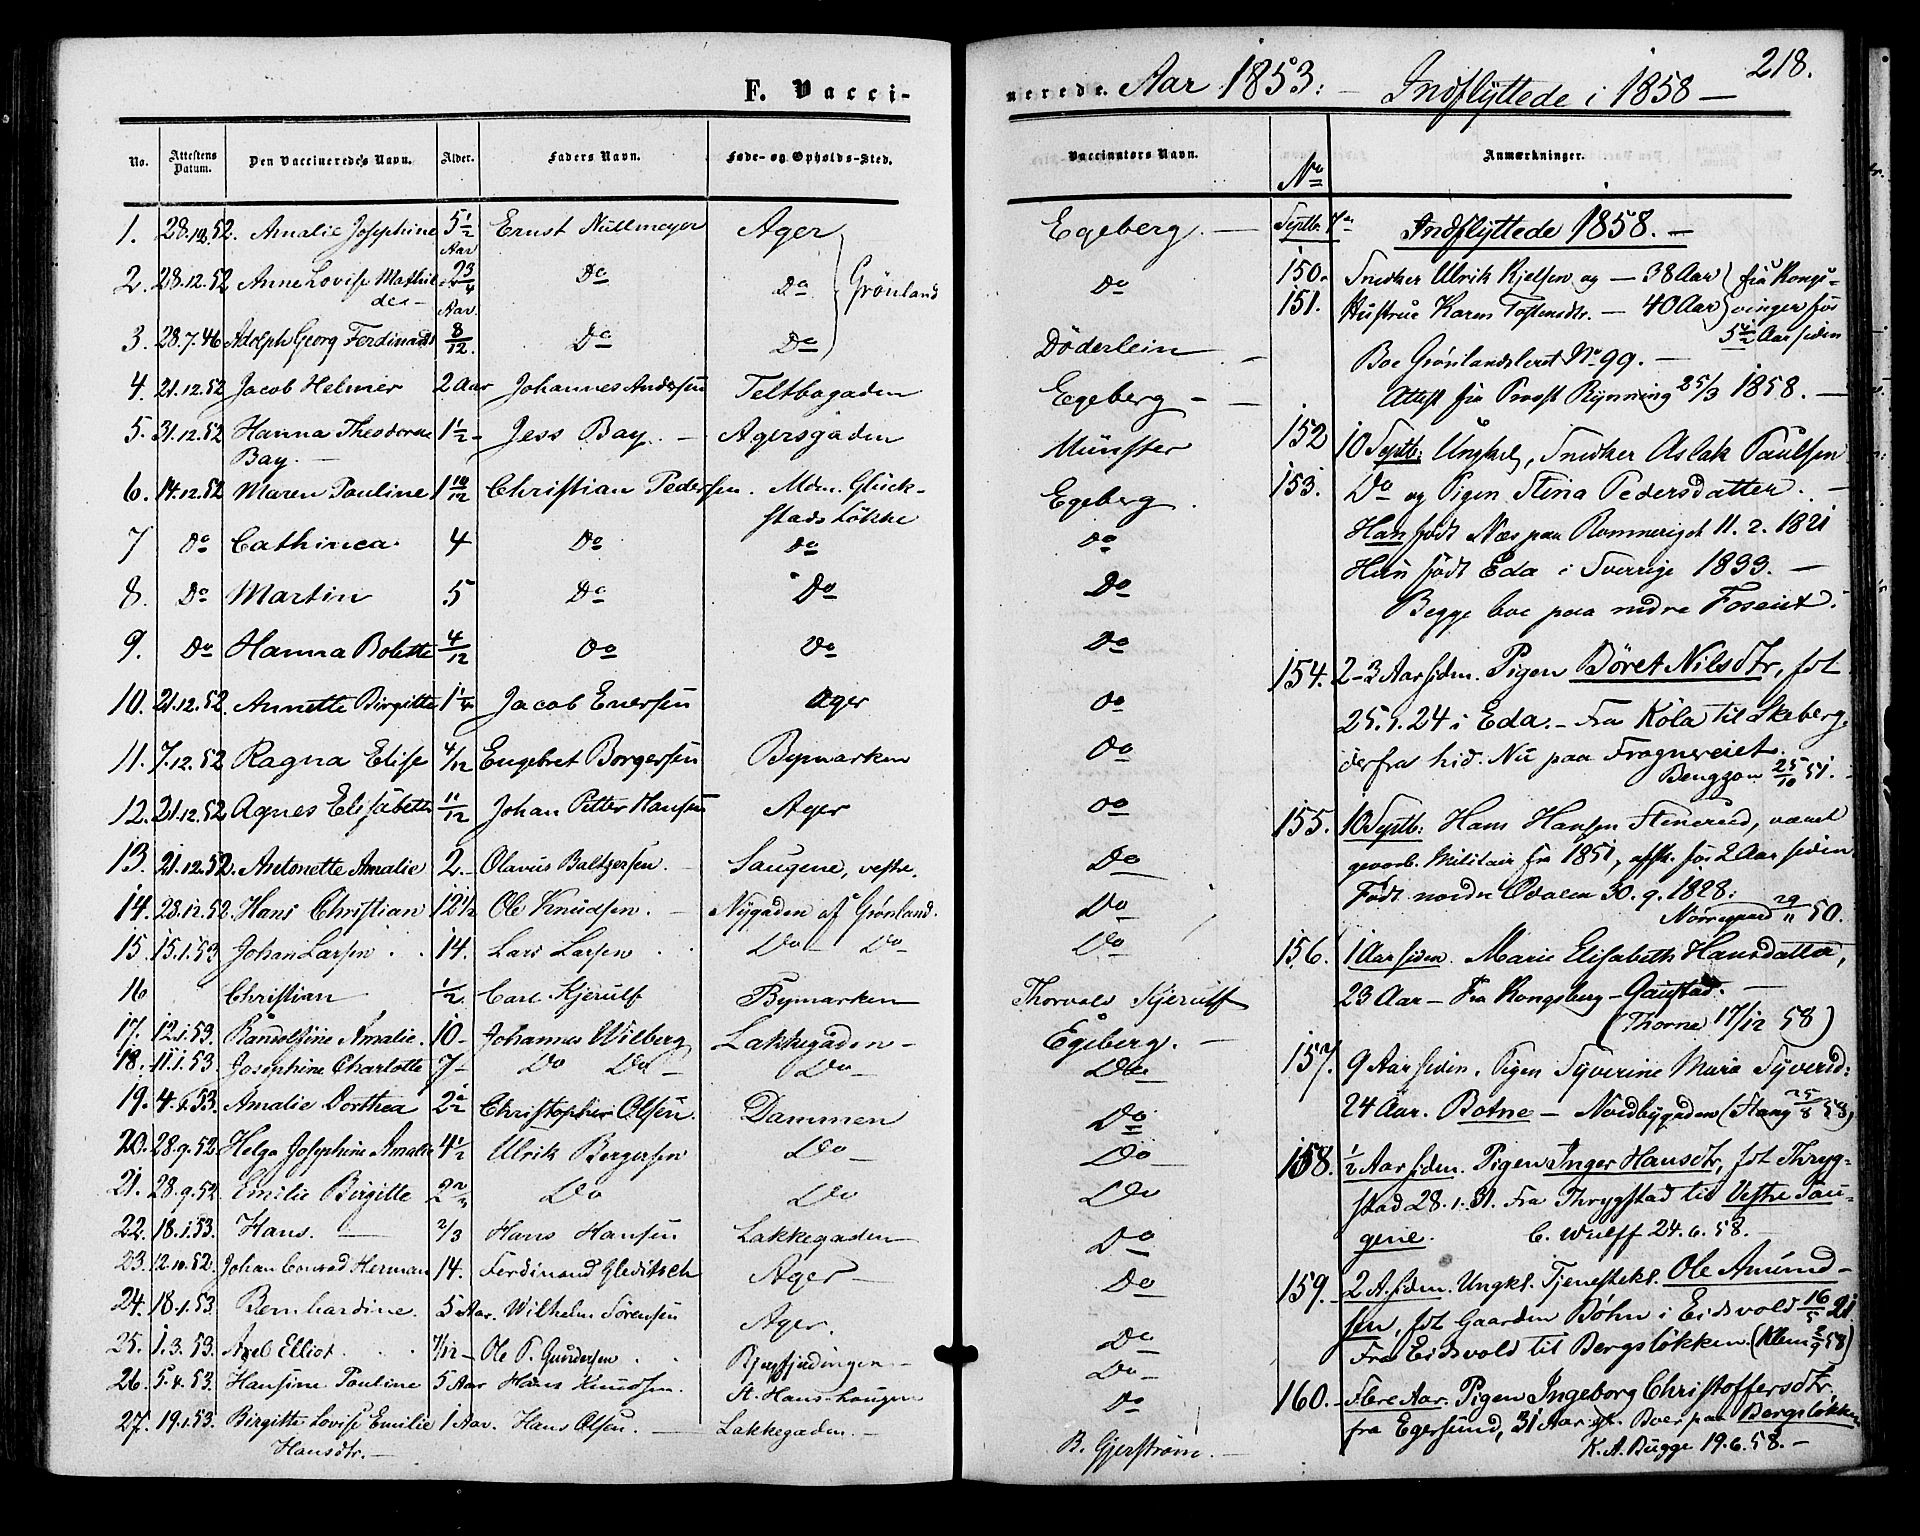 218.
F. Vacci-
nerede. Aar 1853: – Indflyttede i 1858 –
No. Attestens Datum. Den Vaccineredes Navn. Alder. Faders Navn. Føde- og Opholds-Sted.
1. 28.12.52. Amalie Josephine 5 1/2 Aar Ernst Nullmeyer Ager
2. 28.12.52 Anne Lovise Mathil- 2 3/4 Do Do Grønland
des – Aar.
3. 28.7.46 Adolph Georg Ferdinand 8/12. Do Do
4. 21.12.52 Jacob Helmer 2 Aar Johannes Andersen Teltbogaden
5. 31.12.52 Hanna Theodorea 1 1/2 – Jess Bay. – Agersgaden
Bay. –
6. 14.12.52 Maren Pauline 1 10/12 Christian Pedersen. Mdm. Glück-
stads Løkke
7 Do Cathinca 4 Do Do
8. Do Martin 5 Do Do
9. Do Hanna Bolette 4/12 Do Do
10. 21.12.52. Annette Birgitte 1 1/4 Jacob Enersen Ager
11. 7.12.52 Ragna Elise 4/12 Engebret Borgersen Bymarken
12. 21.12.52 Agnes Elisabeth 11/12 Johan Petter Hansen Ager
13. 21.12.52. Antonette Amalie 2. – Olavus Baltzersen. – Saugene, vestre.
14. 28.12.52 Hans Christian 12 1/2 Ole Knudsen. – Nygaden af Grønland.
15. 15.1.53 Johan Larsen . . 14. Lars Larsen . Do – Do –
16 Christian 1/2. Carl Kjerulf Bymarken
17. 12.1.53. Randolfine Amalie. 10 – Johannes Wilberg Lakkegaden –
18. 11.1.53. Josephine Charlotte 7 – Do Do – Do –
19. 4.1.53. Amalie Dorthea 2 1/2 Christopher Olsen. Dammen
20. 28.9.52 Helga Josephine Amalie 4 1/2 Ulrik Bergersen Do –
21. 28.9.52. Emilie Birgitte 2 2/3 Do Do
22. 18.1.53. Hans. – 2/3 Hans Hansen Lakkegaden
23. 12.10.52. Johan Conrad Herman 14. Ferdinand Gleditsch Ager –
24. 18.1.53. Bernhardine. 5 Aar. Wilhelm Sørensen Ager.
25. 1.3.53. Axel Elliot . . . 7/12 – Ole P. Gundersen . .
26. 5.4.53. Hansine Pauline 5 Aar Hans Knudsen. St. Hans-haugen
27. 19.1.53. Birgitte Lovise Emilie 1 Aar. Hans Olsen. – Lakkegaden. –
Hansdtr. –
Vaccinators Navn.
Egeberg. –
Do
Döderlein –
Egeberg – –
Münster
Egeberg .
Do
Do
Do
Do
Do
Do
Do
Do
Do
Thorvald Kjerulf
Egeberg. –
Do
Do
Do –
Do
Do
Do
Do
Do –
Do
B. Gjerstrøm. –
No Anmærkninger.
Septb. 7de Indflyttede 1858. –
150. Snedker Ulrik Kjelsen og – 38 Aar fra Kongs-
151. Hustrue Karen Tostensdtr. – 40 Aar vinger for
5 1/2 Aar siden
Boe Grønlandsleret No 99. –
Attest fra Provst Rynning 25/3 1858. –
152 10 Septb: Ungkel, Snedker Aslak Paulsen
153. Do og Pigen Stina Pedersdatter. –
Han født Næs paa Romeriget 11.2.1821
Hun født Eda i Sverrige 1833. –
Begge boe paa nedre Foseiet.
154. 2–3 Aar siden. Pigen Böret Nilsdtr, fdt
25.1.24 i Eda. – Fra Köla til Skeberg,
derfra hid. Nu paa Frogner eiet.
Bengzon 25/10 51. –
155. 10 Septb: Hans Hansen Stenerud, været
gevorb. Militair fra 1851, afsk. for 2 Aar siden.
Født nordre Odalen 30.9.1828:
Nørregaard 29/11 50.
156. 1 Aar siden. Marie Elisabeth Hansdatter,
23 Aar – Fra Kongsberg – Gaustad. –
(Thorne 17/12 58)
157. 9 Aar siden. Pigen Syverine Marie Syversd:
24 Aar. Botne – Nordbygaden (Stang 25/8 58)
158. 1/2 Aar siden. Pigen Inger Hansdtr, fdt Thryg-
stad 28.1.31. Fra Thrygstad til Vestre Sau-
gene. C. Wulff 24.6.58. –
159. – 2 A. siden. Ungkl. Tjenestekl. Ole Amund-
sen, fdt Gaarden Bøhn i Eidsvold 16/5 21.
Fra Eidsvold til Bergsløkken. (Klem 2/9 58)
160. – Flere Aar. Pigen Ingeborg Christoffersdtr,
fra Egersund, 31 Aar gl. Boer paa Bergsløkken
K. A. Bugge 19.6.58. –